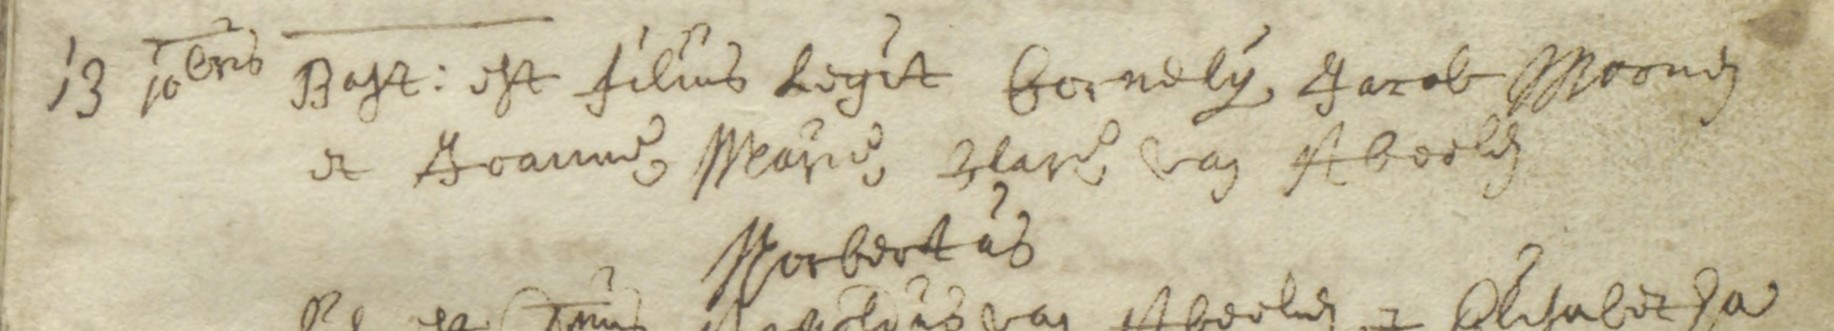 13 10bris Bapt: est filius Legit Cornelij Jacob Moons
et Joannæ Mariæ Claræ van Abeelen
Norbertus
est van Abeelen et Elisabet